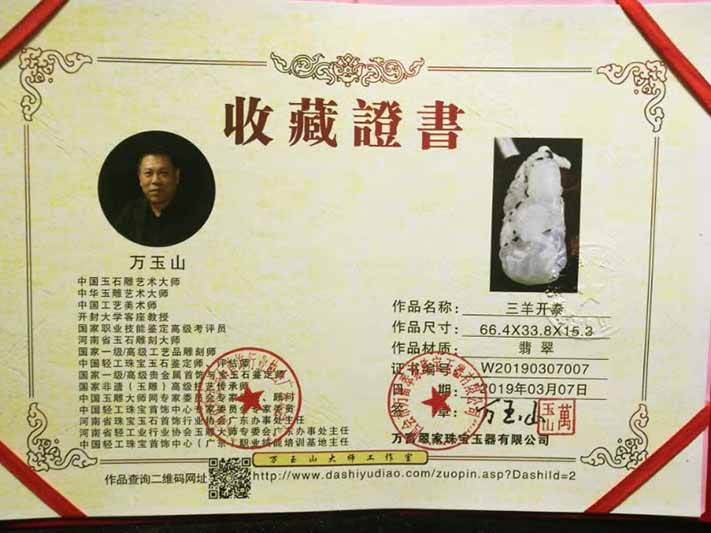 收藏證書
万玉山
中国玉石雕艺术大师
中华玉雕艺术大师
中国工艺美术师
开封大学客座教授
国家职业技能鉴定高级考评员
河南省玉石雕刻大师
国家一级/高级工艺品雕刻师
中国轻工珠宝玉石鉴定师、评估师
国家一级/高级贵金属首饰与宝玉石鉴定师
国家非遗（玉雕）高级技艺传承师
中国玉雕大师网专家委员会专家、顾问
中国轻工珠宝首饰中心专家委员会专家委员
河南省珠宝玉石首饰行业协会广东办事处主任
河南省轻工业行业协会玉雕大师专委会广东办事处主任
中国轻工珠宝首饰中心（广东）职业技能培训基地主任
作品名称：三羊开泰
作品尺寸：66.4X33.8X15.3
作品材质：翡翠
证书编号：W20190307007
2019年03月07日
签 章：万玉山
萬玉山
翠家珠宝玉器有限公司
万玉山大师工作室
作品查询二维码网址
http://www.dashiyudiao.com/zuopin.asp?DashiId=2